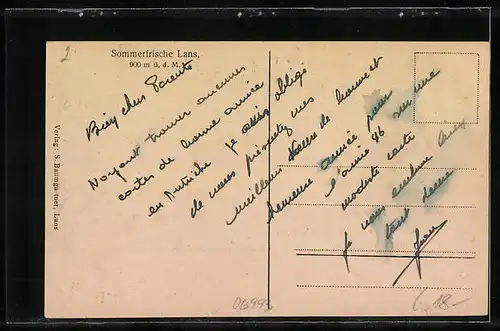 2
Sommerfrische Lans,
900 m ü. d. M.
Verlag: S. Baumgartner, Lans
Bien chers Parents
N'ayant trouver aucunes
cartes de bonne année
en Autriche je suis obligé
de vous présentez mes
meilleurs vœux de bonne et
heureuse année pour
l'année 46 sur une
modeste carte
Je vous embrasse
tous deux
06993
18-